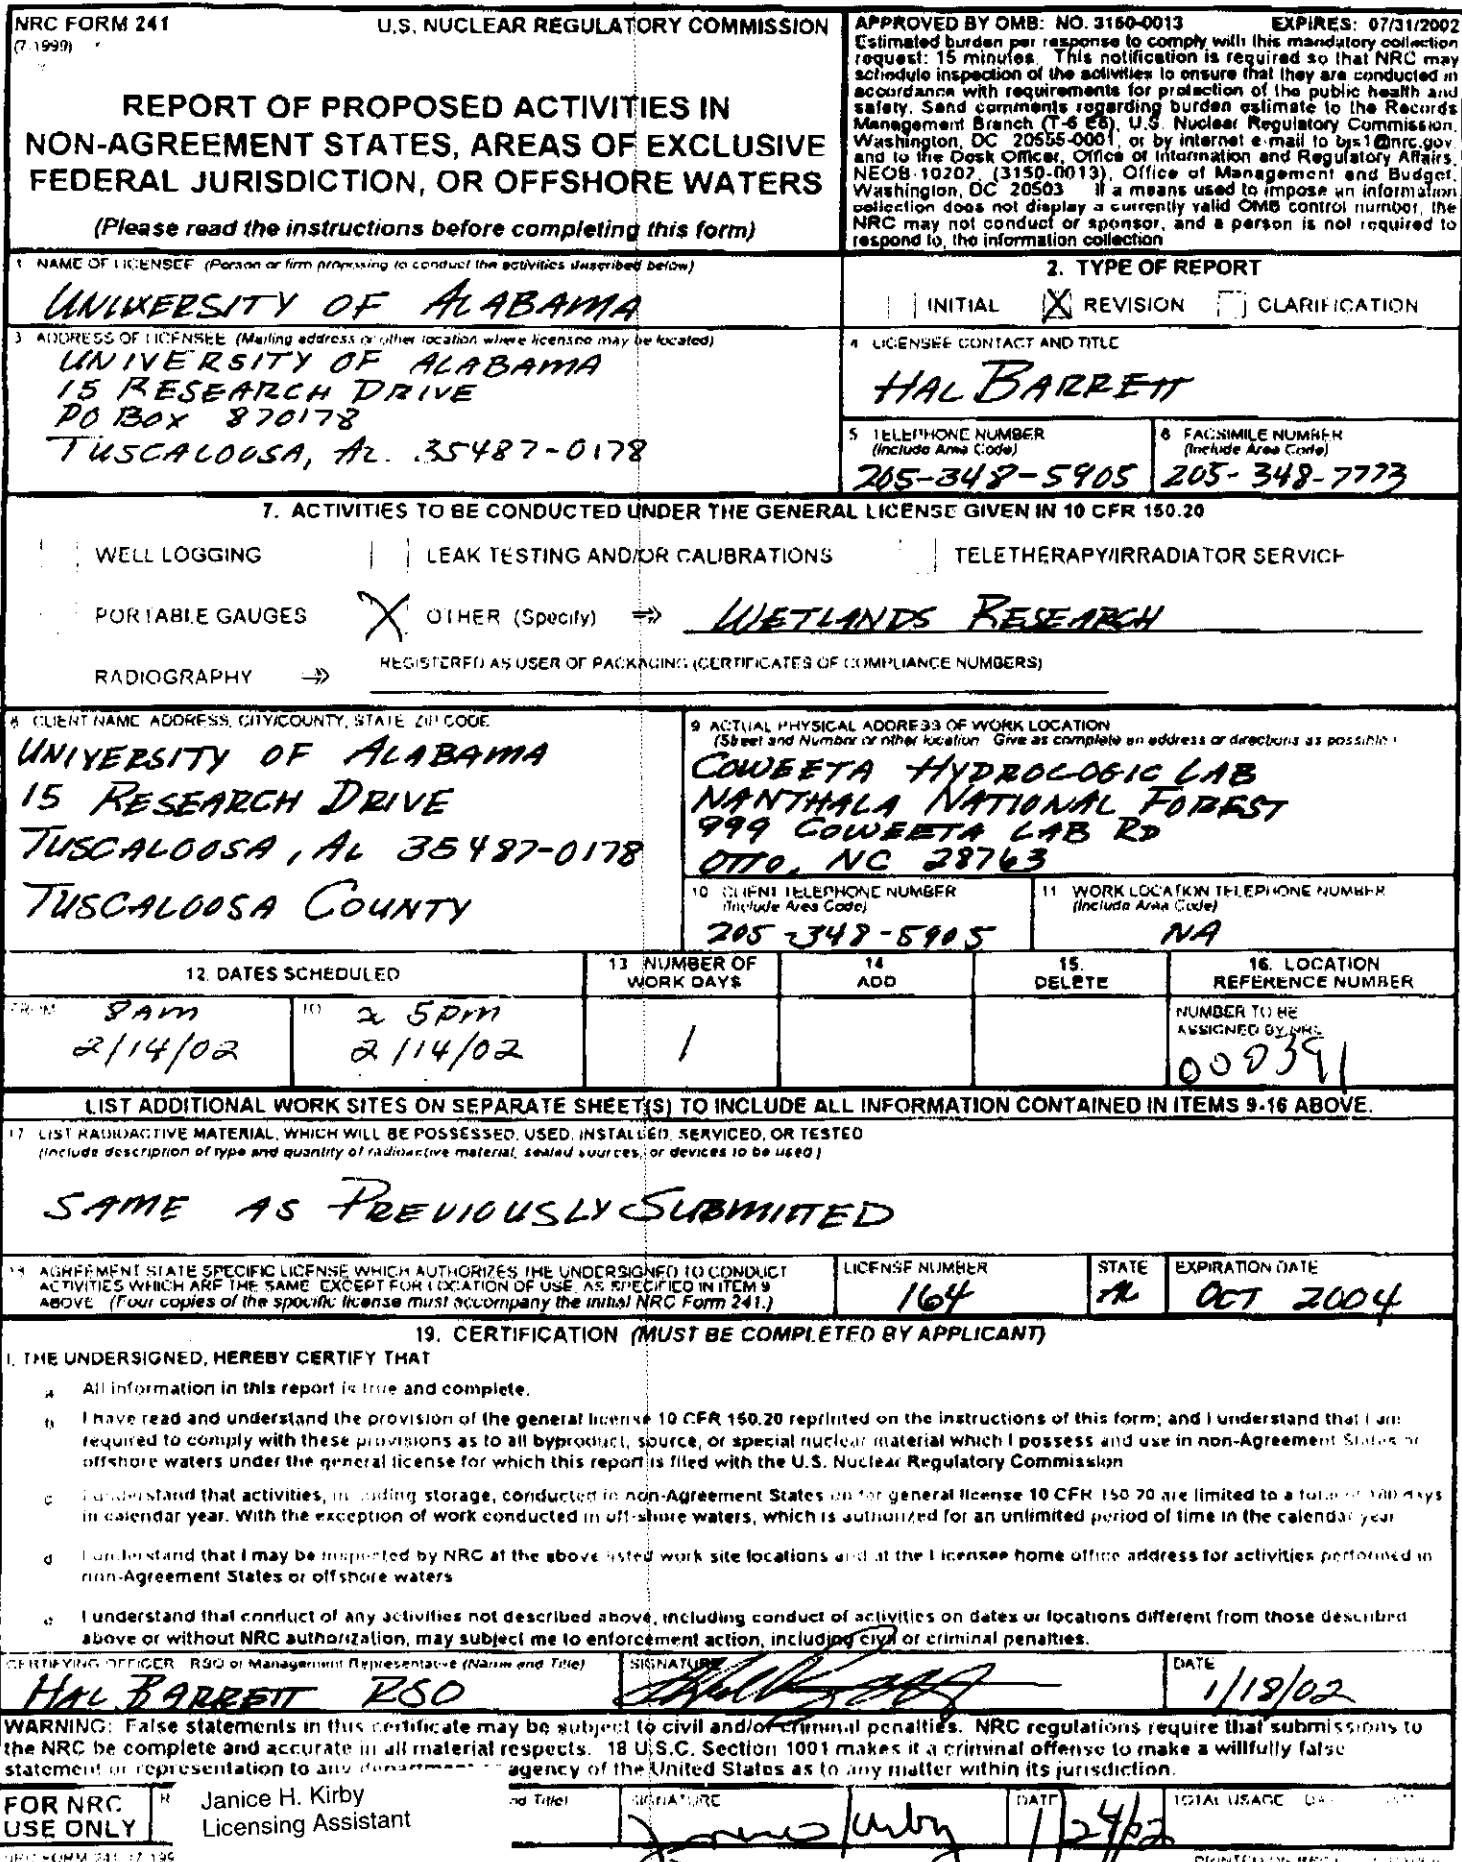 NRC FORM 241
(7-1999)
U.S. NUCLEAR REGULATORY COMMISSION
REPORT OF PROPOSED ACTIVITIES IN
NON-AGREEMENT STATES, AREAS OF EXCLUSIVE
FEDERAL JURISDICTION, OR OFFSHORE WATERS
(Please read the instructions before completing this form)
APPROVED BY OMB: NO. 3150-0013 EXPIRES: 07/31/2002
Estimated burden per response to comply with this mandatory collection
request: 15 minutes. This notification is required so that NRC may
schedule inspection of the activities to ensure that they are conducted in
accordance with requirements for protection of the public health and
safety. Send comments regarding burden estimate to the Records
Management Branch (T-6 E6), U.S. Nuclear Regulatory Commission,
Washington, DC 20555-0001, or by internet e-mail to bjs1@nrc.gov,
and to the Desk Officer, Office of Information and Regulatory Affairs,
NEOB-10202, (3150-0013), Office of Management and Budget,
Washington, DC 20503 If a means used to impose an information
collection does not display a currently valid OMB control number, the
NRC may not conduct or sponsor, and a person is not required to
respond to, the information collection
1 NAME OF LICENSEE (Person or firm proposing to conduct the activities described below)
UNIVERSITY OF ALABAMA
2. TYPE OF REPORT
INITIAL X REVISION CLARIFICATION
3 ADDRESS OF LICENSEE (Mailing address or other location where licensee may be located)
UNIVERSITY OF ALABAMA
15 RESEARCH DRIVE
PO BOX 870178
TUSCALOOSA, AL. 35487-0178
4 LICENSEE CONTACT AND TITLE
HAL BARRETT
5 TELEPHONE NUMBER
(Include Area Code)
205-348-5905
6 FACSIMILE NUMBER
(Include Area Code)
205-348-7773
7. ACTIVITIES TO BE CONDUCTED UNDER THE GENERAL LICENSE GIVEN IN 10 CFR 150.20
WELL LOGGING LEAK TESTING AND/OR CALIBRATIONS TELETHERAPY/IRRADIATOR SERVICE
PORTABLE GAUGES X OTHER (Specify) ⇒ WETLANDS RESEARCH
RADIOGRAPHY ⇒ REGISTERED AS USER OF PACKAGING (CERTIFICATES OF COMPLIANCE NUMBERS)
8 CLIENT NAME ADDRESS, CITY/COUNTY, STATE ZIP CODE
UNIVERSITY OF ALABAMA
15 RESEARCH DRIVE
TUSCALOOSA, AL 35487-0178
TUSCALOOSA COUNTY
9 ACTUAL PHYSICAL ADDRESS OF WORK LOCATION
(Street and Number or other location Give as complete an address or directions as possible)
COWEETA HYDROLOGIC LAB
NANTHALA NATIONAL FOREST
999 COWEETA LAB RD
OTTO, NC 28763
10 CLIENT TELEPHONE NUMBER
(Include Area Code)
205-348-5905
11 WORK LOCATION TELEPHONE NUMBER
(Include Area Code)
NA
12. DATES SCHEDULED
13 NUMBER OF
WORK DAYS
14
ADD
15.
DELETE
16. LOCATION
REFERENCE NUMBER
FROM 8AM
2/14/02
TO ~ 5pm
2/14/02
1
NUMBER TO BE
ASSIGNED BY NRC
000391
LIST ADDITIONAL WORK SITES ON SEPARATE SHEET(S) TO INCLUDE ALL INFORMATION CONTAINED IN ITEMS 9-16 ABOVE.
17 LIST RADIOACTIVE MATERIAL, WHICH WILL BE POSSESSED, USED, INSTALLED, SERVICED, OR TESTED
(Include description of type and quantity of radioactive material, sealed sources, or devices to be used)
SAME AS PREVIOUSLY SUBMITTED
18 AGREEMENT STATE SPECIFIC LICENSE WHICH AUTHORIZES THE UNDERSIGNED TO CONDUCT
ACTIVITIES WHICH ARE THE SAME, EXCEPT FOR LOCATION OF USE, AS SPECIFIED IN ITEM 9
ABOVE (Four copies of the specific license must accompany the initial NRC Form 241.)
LICENSE NUMBER
164
STATE
AL
EXPIRATION DATE
OCT 2004
19. CERTIFICATION (MUST BE COMPLETED BY APPLICANT)
I, THE UNDERSIGNED, HEREBY CERTIFY THAT
a All information in this report is true and complete.
b I have read and understand the provision of the general license 10 CFR 150.20 reprinted on the instructions of this form; and I understand that I am
required to comply with these provisions as to all byproduct, source, or special nuclear material which I possess and use in non-Agreement States or
offshore waters under the general license for which this report is filed with the U.S. Nuclear Regulatory Commission
c I understand that activities, including storage, conducted in non-Agreement States under general license 10 CFR 150.20 are limited to a total of 180 days
in calendar year. With the exception of work conducted in off-shore waters, which is authorized for an unlimited period of time in the calendar year
d I understand that I may be inspected by NRC at the above listed work site locations and at the Licensee home office address for activities performed in
non-Agreement States or offshore waters
e I understand that conduct of any activities not described above, including conduct of activities on dates or locations different from those described
above or without NRC authorization, may subject me to enforcement action, including civil or criminal penalties.
CERTIFYING OFFICER RSO or Management Representative (Name and Title)
HAL BARRETT RSO
SIGNATURE
DATE
1/18/02
WARNING: False statements in this certificate may be subject to civil and/or criminal penalties. NRC regulations require that submissions to
the NRC be complete and accurate in all material respects. 18 U.S.C. Section 1001 makes it a criminal offense to make a willfully false
statement or representation to any department or agency of the United States as to any matter within its jurisdiction.
FOR NRC
USE ONLY
Janice H. Kirby
Licensing Assistant
nd Title)
SIGNATURE
DATE
1/24/02
TOTAL USAGE
NRC FORM 241 (7 199